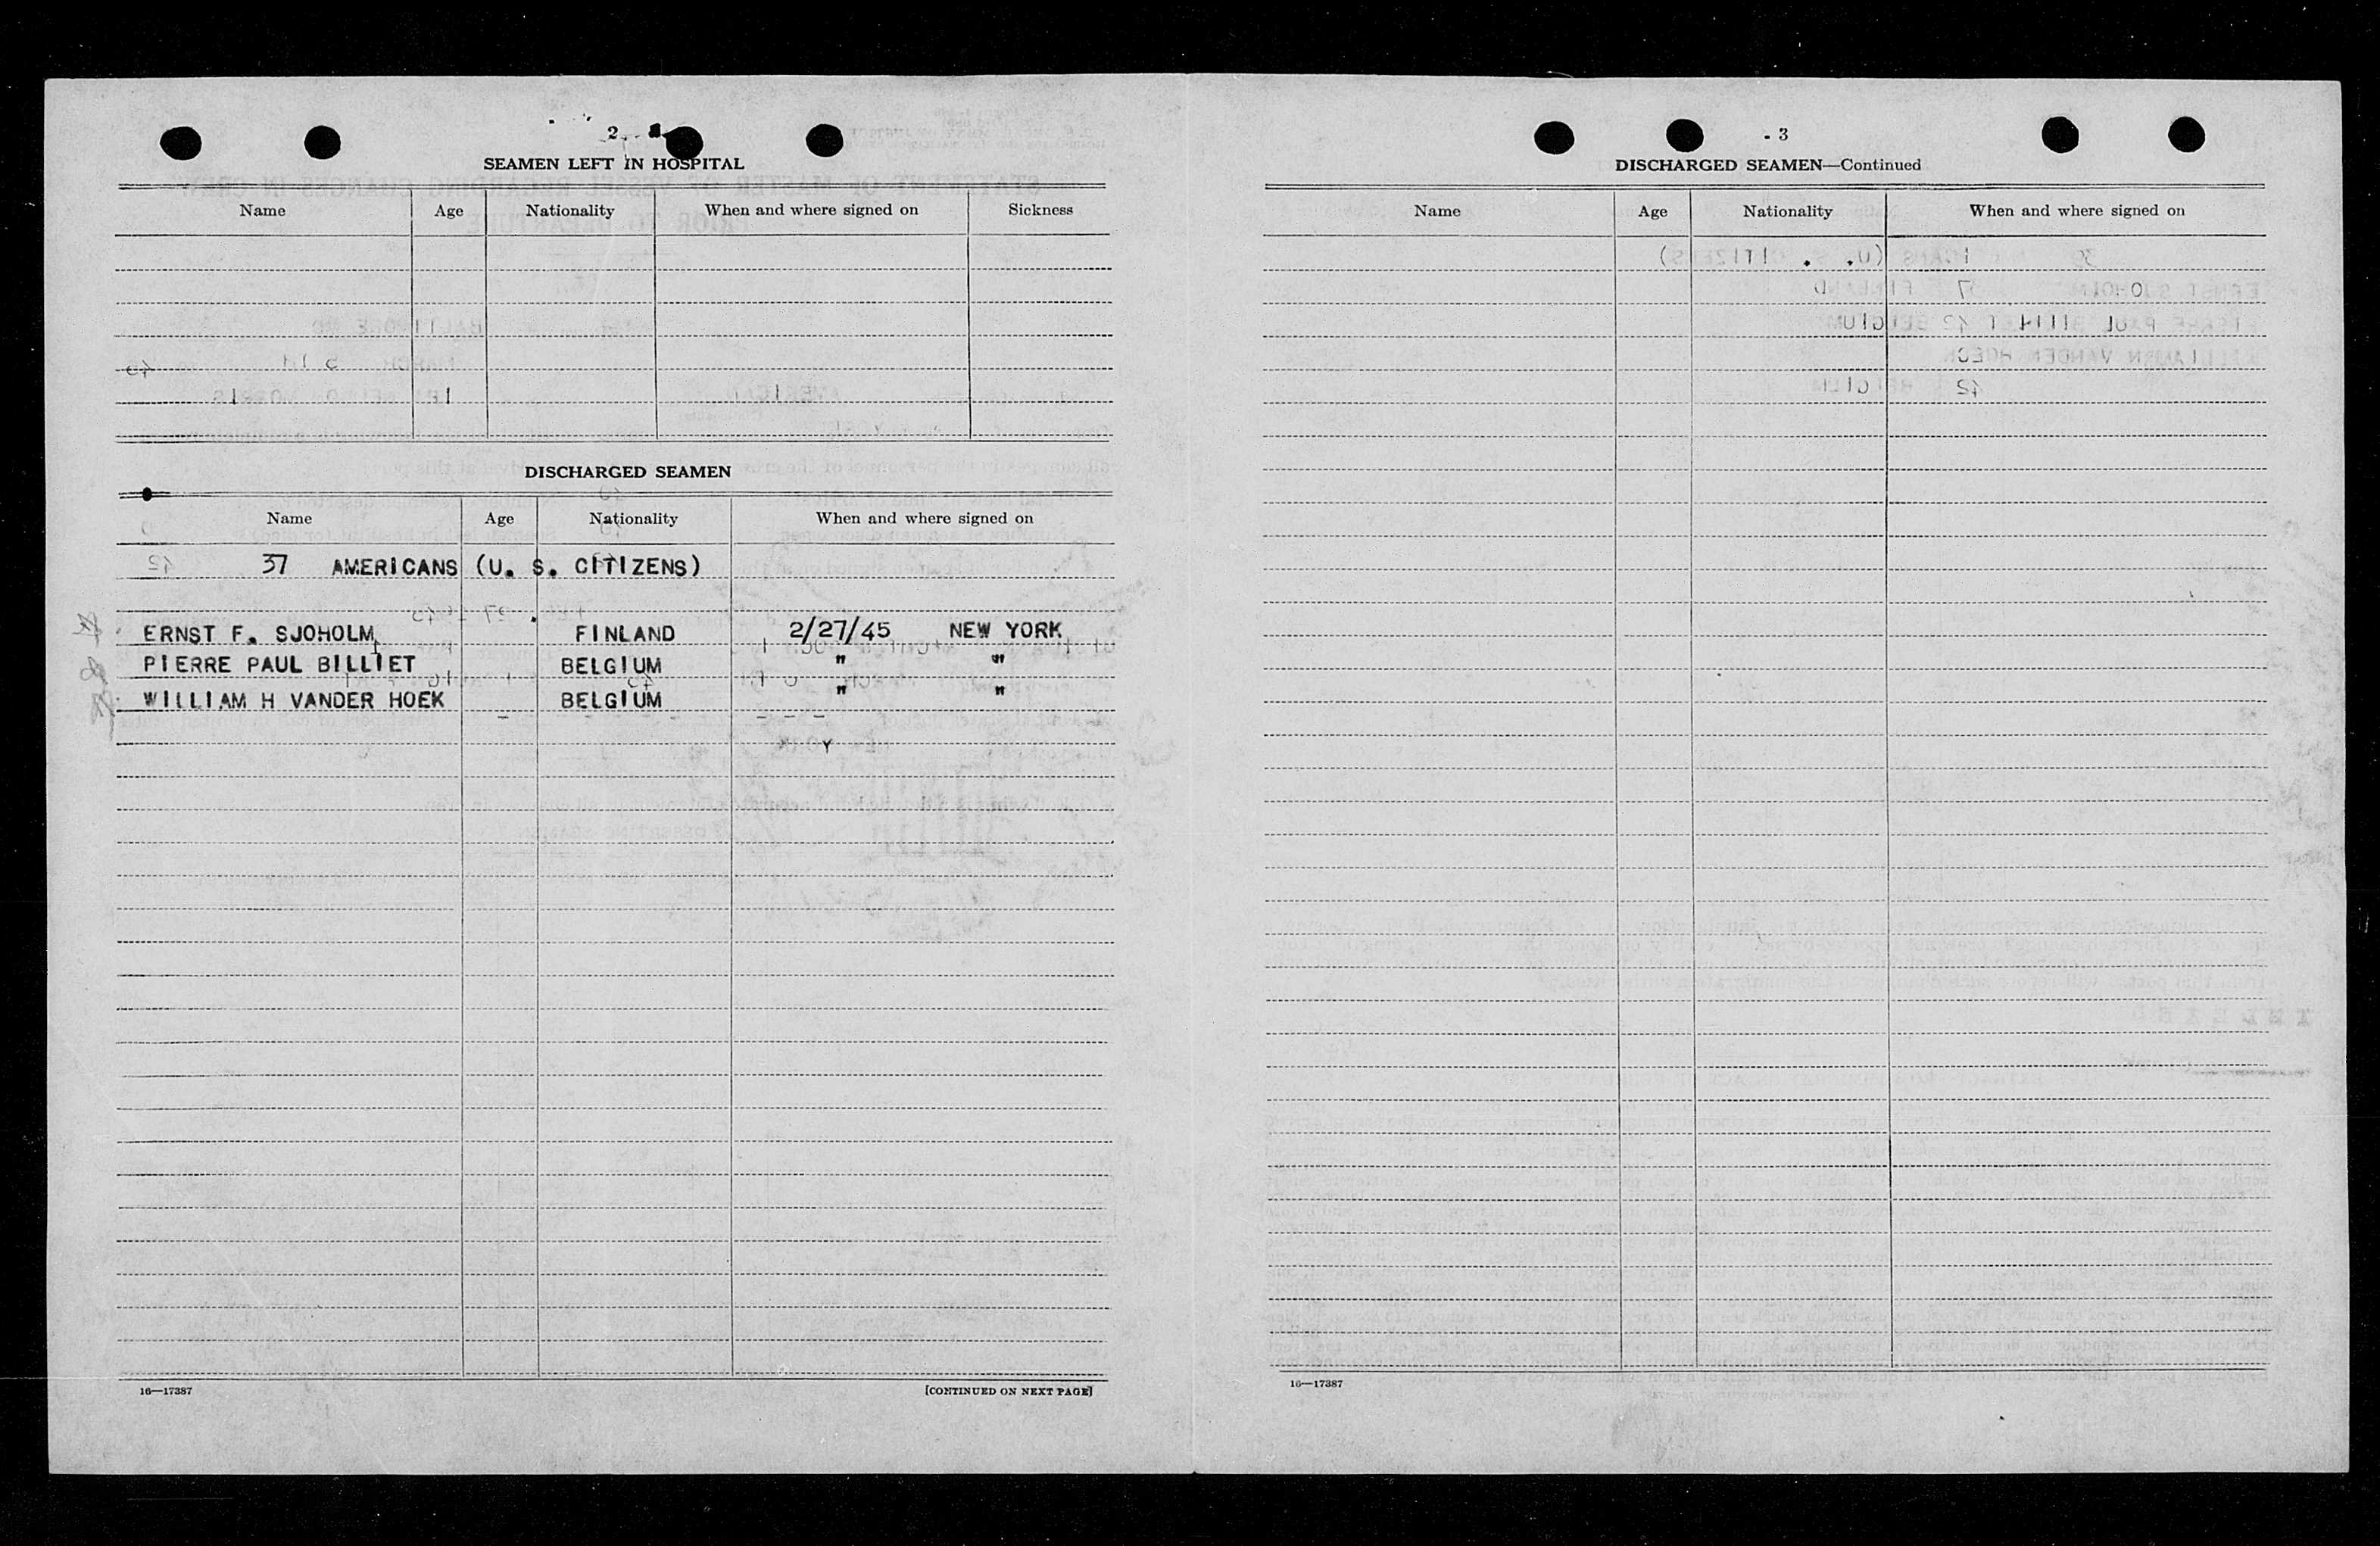 2
SEAMEN LEFT IN HOSPITAL
Name Age Nationality When and where signed on Sickness
DISCHARGED SEAMEN
Name Age Nationality When and where signed on
37 AMERICANS (U. S. CITIZENS)
ERNST F. SJOHOLM FINLAND 2/27/45 NEW YORK
PIERRE PAUL BILLIET BELGIUM " "
WILLIAM H VANDER HOEK BELGIUM " "
16—17387 [CONTINUED ON NEXT PAGE]
3
DISCHARGED SEAMEN—Continued
Name Age Nationality When and where signed on
16—17387